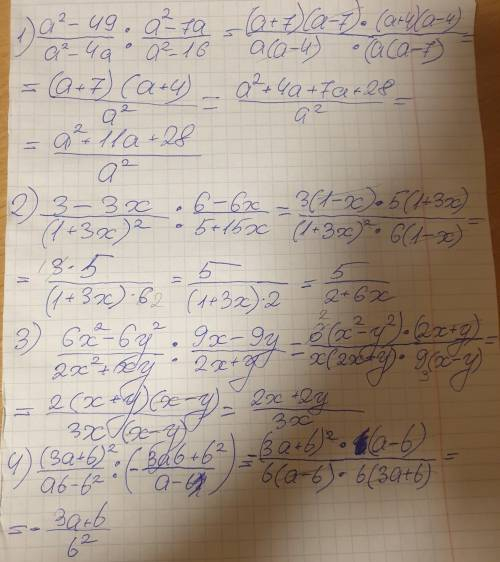 1) (a² - 49)/(a² - 4a) : (a² - 7a)/(a² - 16) = ((a+7)(a-7) · (a+4)(a-4))/(a(a-4) · (a(a-7)) =
= ((a+7)(a+4))/a² = (a² + 4a + 7a + 28)/a² =
= (a² + 11a + 28)/a²
2) (3 - 3x)/(1+3x)² : (6 - 6x)/(5 + 15x) = (3(1-x) · 5(1+3x))/((1+3x)² · 6(1-x)) =
= (3 · 5)/((1+3x) · 6 2) = 5/((1+3x) · 2) = 5/(2+6x)
3) (6x² - 6y²)/(2x² + xy) : (9x - 9y)/(2x+y) = (6 2 (x² - y²) · (2x+y))/(x(2x+y) · 9 3 (x-y)) =
= (2(x+y)(x-y))/(3x (x-y)) = (2x + 2y)/3x
4) (3a+b)²/(ab - b²) : (- (3ab + b²)/(a - b)) = ((3a+b)² · (a-b))/(b(a-b) · b(3a+b)) =
= - (3a+b)/b²